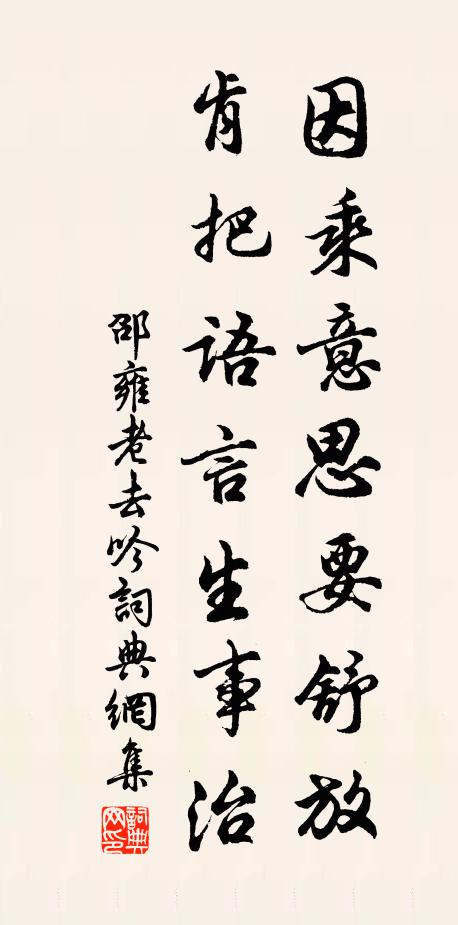 因乘意思要舒放
肯把語言生事治
邵雍老去吟詞典網集
詞典網印